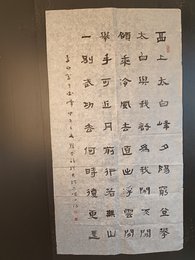 西上太白峰夕陽窮登攀
太白與我語為我開天關
願乘泠風去直出浮雲間
舉手可近月前行若無山
一別武功去何時復更還